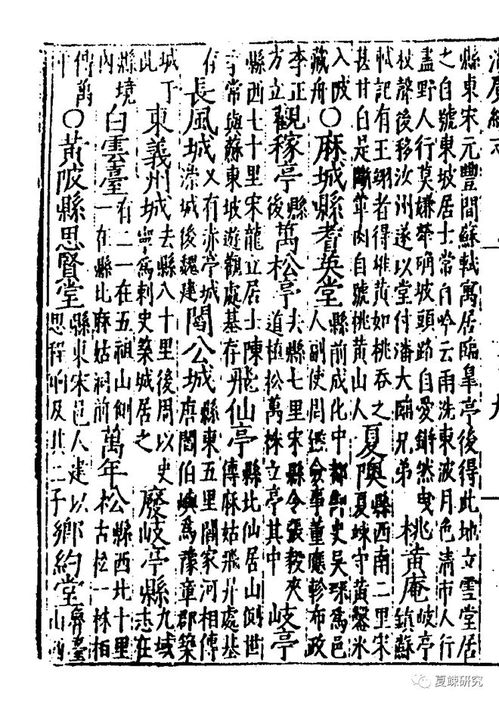 縣東宋元豐間蘇軾寓居臨臯亭後得此地立雪堂居
之自號東坡居士常自吟云雨洗東坡月色清市人行
盡野人行莫嫌犖确坡頭路自愛鏗然曳
杖聲後移汝州遂以堂付潘大臨兄弟 桃黃庵 岐亭鎮蘇
軾記有王翊者得桃黃如桃吞之甚甘自是斷葷肉自號桃黃山人 夏隩 縣西南二里宋夏竦守黃鑿水
入陂藏舟 ○麻城縣耆英堂 縣前成化中都御史吳琛為邑人副使周鑑僉事董應軫布政
李正方立 觀稼亭 縣後 萬松亭 去縣七里宋縣令張毅夾道植松萬株立亭其中 岐亭
縣西七十里宋龍丘居士陳慥字常與蘇東坡遊觀處基存 丹仙亭 縣北仙居山側世傳麻姑飛升處基
存 長風城 又有赤亭城城後魏建 閻公城 縣東五里閻家河相傳唐閻伯嶼為豫章郡築
城于此 東義州城 去縣八十里後周以史寧為刺史築城居之 廢岐亭縣 九域志在
縣境 白雲臺 有二一在五祖山側一在縣北麻姑洞前 萬年松 縣西北十里古松一株相
傳萬年 ○黃陂縣思賢堂 縣東宋邑人建以思程珦及其二子 鄉約堂 魯臺山西
夏竦研究